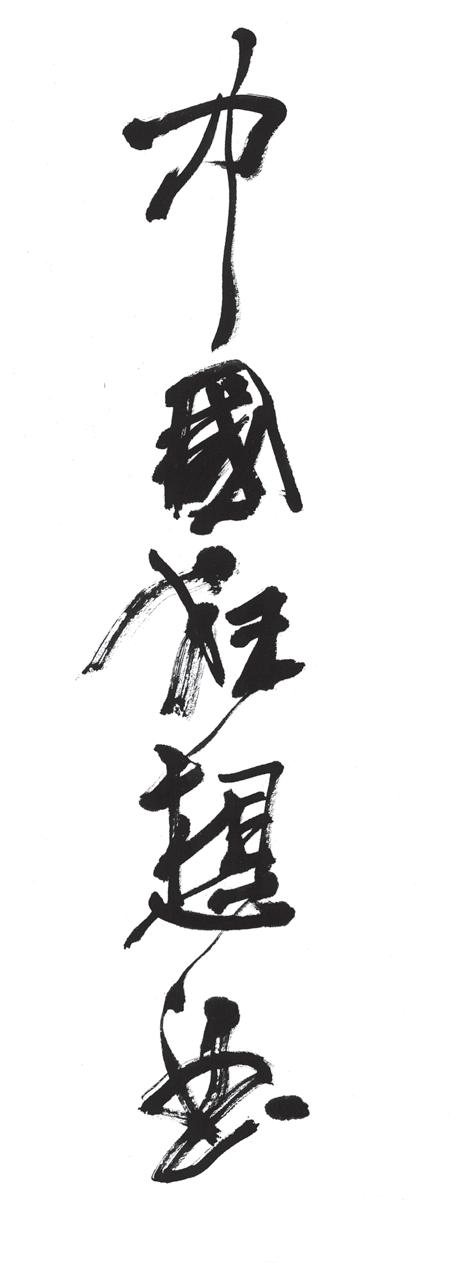 中國狂想曲